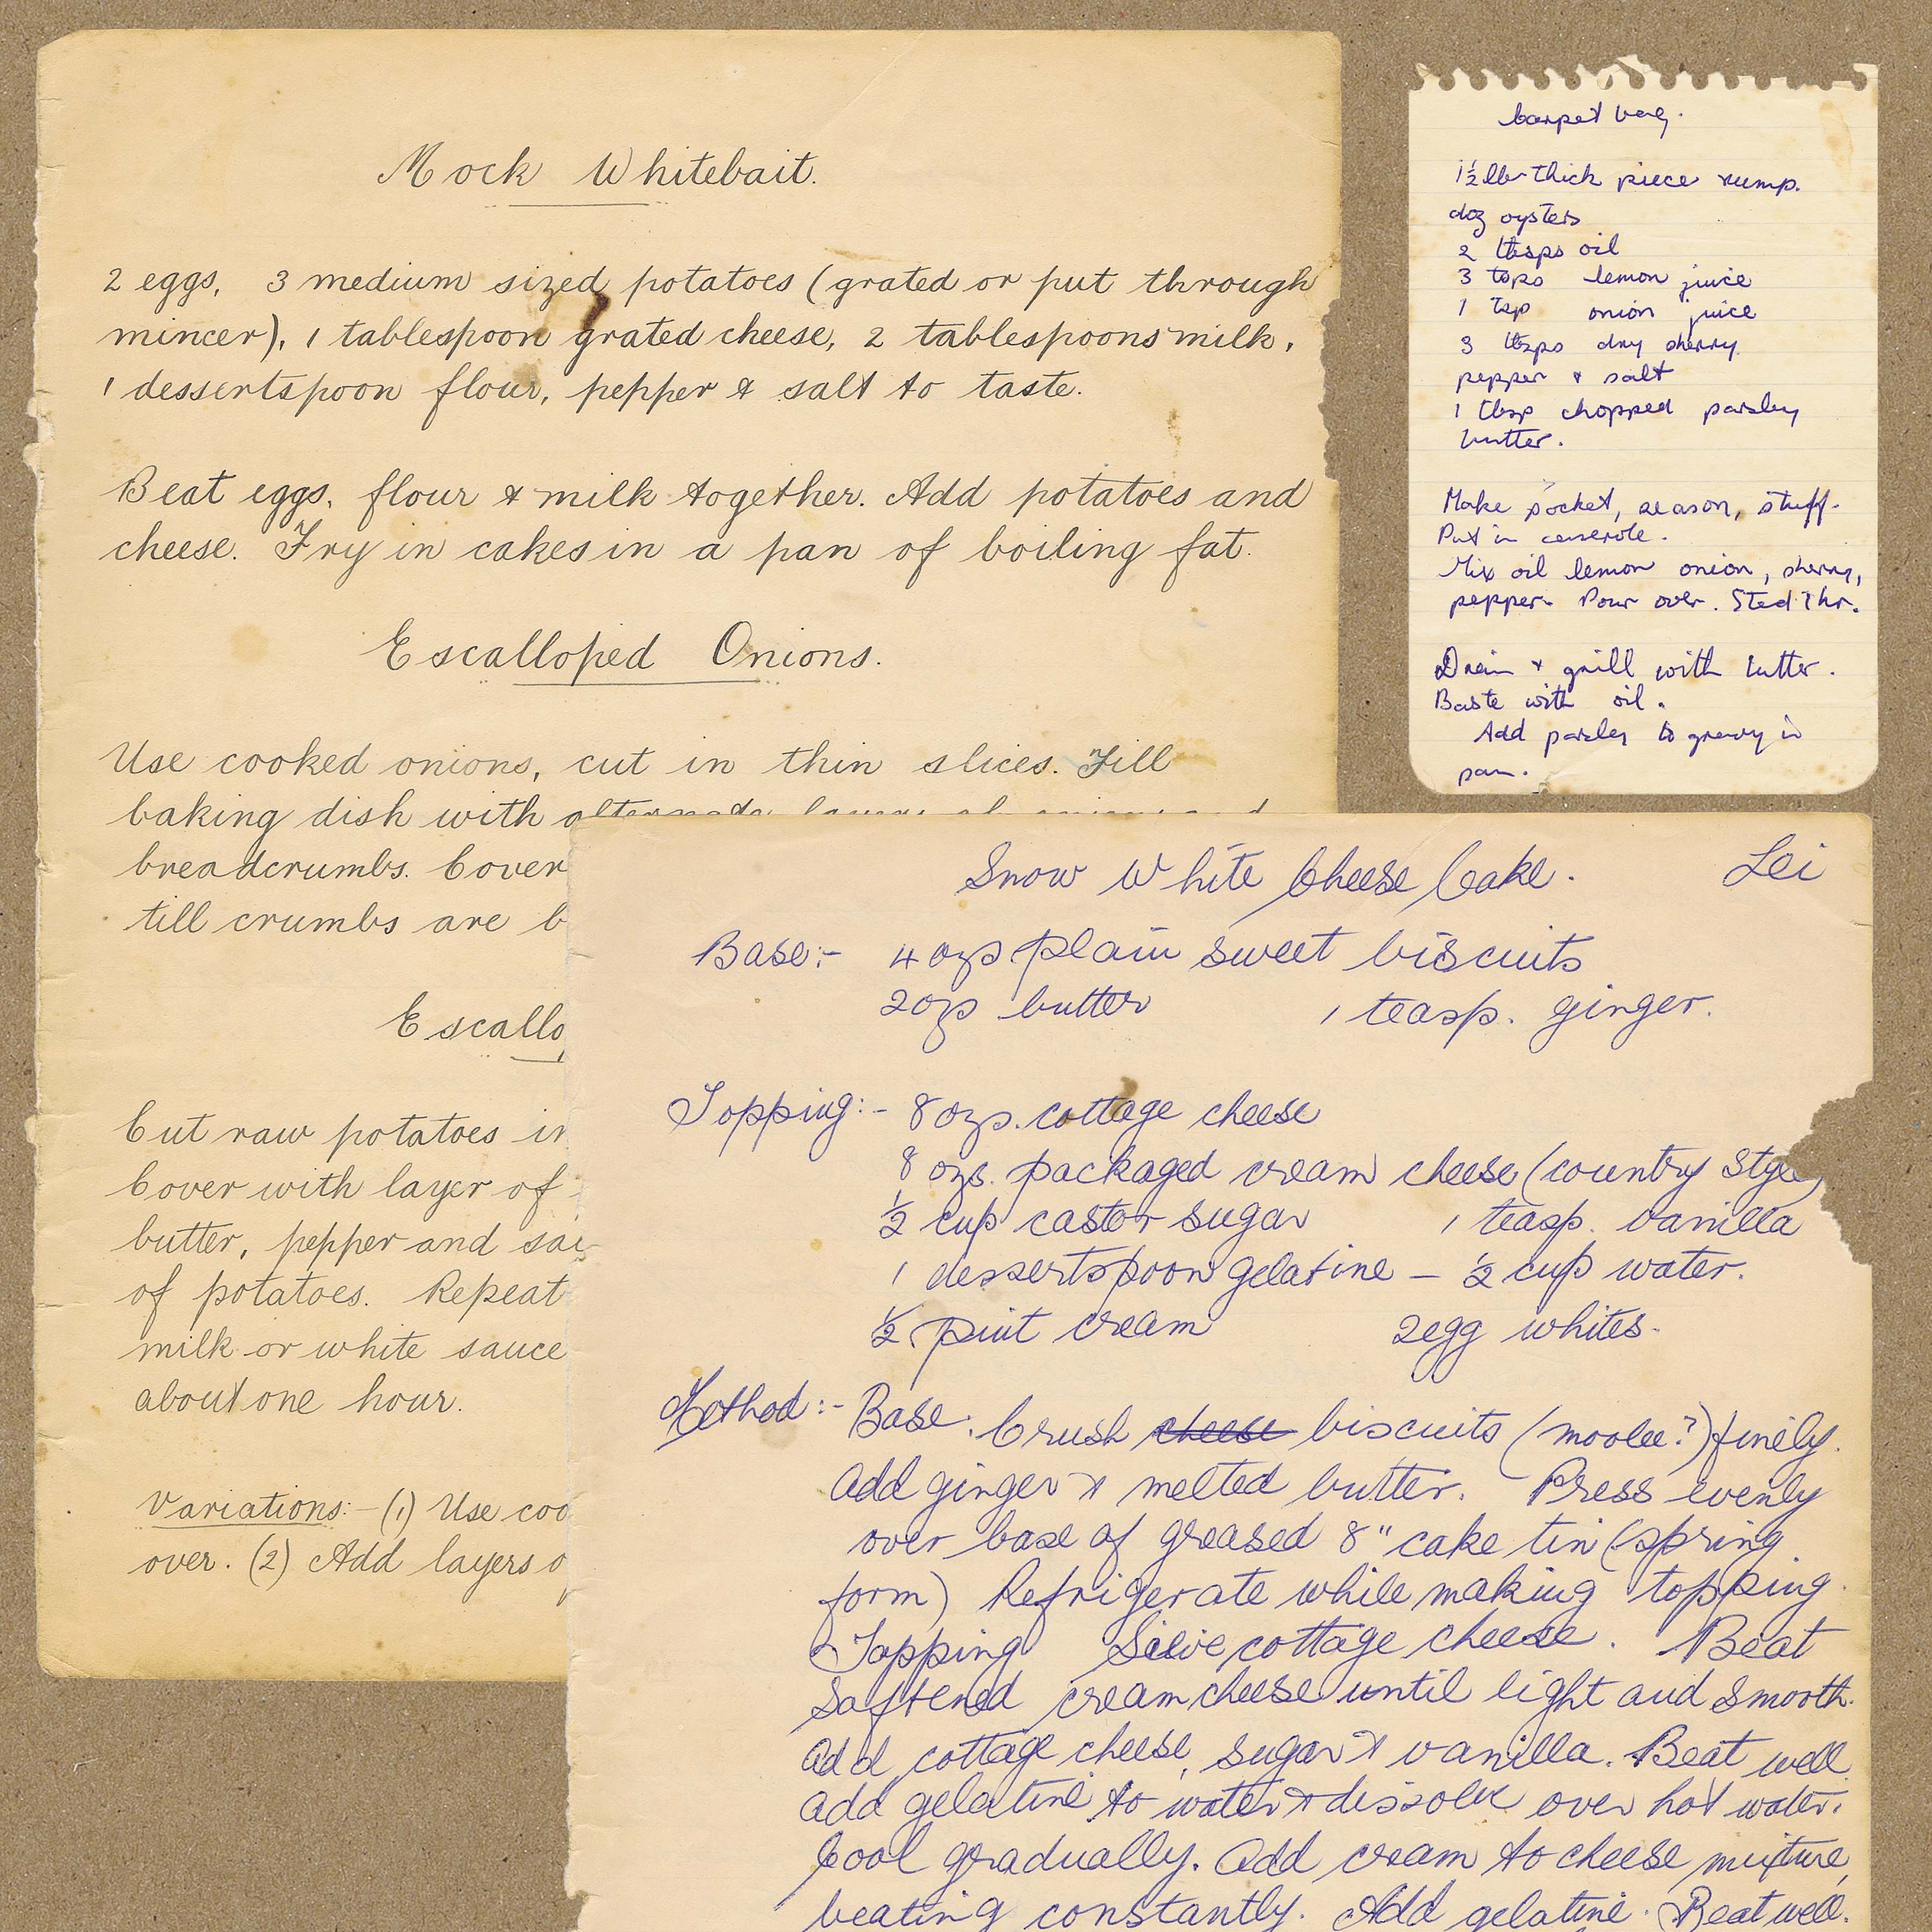 Mock Whitebait.
2 eggs, 3 medium sized potatoes (grated or put through
mincer), 1 tablespoon grated cheese, 2 tablespoons milk,
1 dessertspoon flour, pepper & salt to taste.
Beat eggs, flour & milk together. Add potatoes and
cheese. Fry in cakes in a pan of boiling fat.
Escalloped Onions.
Use cooked onions, cut in thin slices. Fill
baking dish with alternate layers of onions and
breadcrumbs. Cover
till crumbs are b
Escallo
Cut raw potatoes in
Cover with layer of
butter, pepper and sal
of potatoes. Repeat
milk or white sauce
about one hour.
Variations:- (1) Use coo
over. (2) Add layers o
Carpet bag.
1½ lb thick piece rump.
doz oysters
2 tbsps oil
3 tsps lemon juice
1 tsp onion juice
3 tbsps dry sherry
pepper & salt
1 tbsp chopped parsley
butter.
Make pocket, season, stuff.
Put in casserole.
Mix oil lemon onion, sherry,
pepper. Pour over. Sted 1 hr.
Drain & grill with butter.
Baste with oil.
Add parsley to gravy in
pan.
Snow White Cheese Cake. Lei
Base:- 4 ozs plain sweet biscuits
2 ozs butter 1 teasp. ginger.
Topping:- 8 ozs. cottage cheese
8 ozs. packaged cream cheese (country style)
½ cup castor sugar 1 teasp. vanilla
1 dessertspoon gelatine — ½ cup water.
½ pint cream 2 egg whites.
Method:- Base: Crush cheese biscuits (moolee?) finely.
Add ginger & melted butter. Press evenly
over base of greased 8" cake tin (spring
form) Refrigerate while making topping.
Topping Sieve cottage cheese. Beat
softened cream cheese until light and smooth.
Add cottage cheese, sugar & vanilla. Beat well
Add gelatine to water & dissolve over hot water.
Cool gradually. Add cream to cheese mixture,
beating constantly. Add gelatine. Beat well.